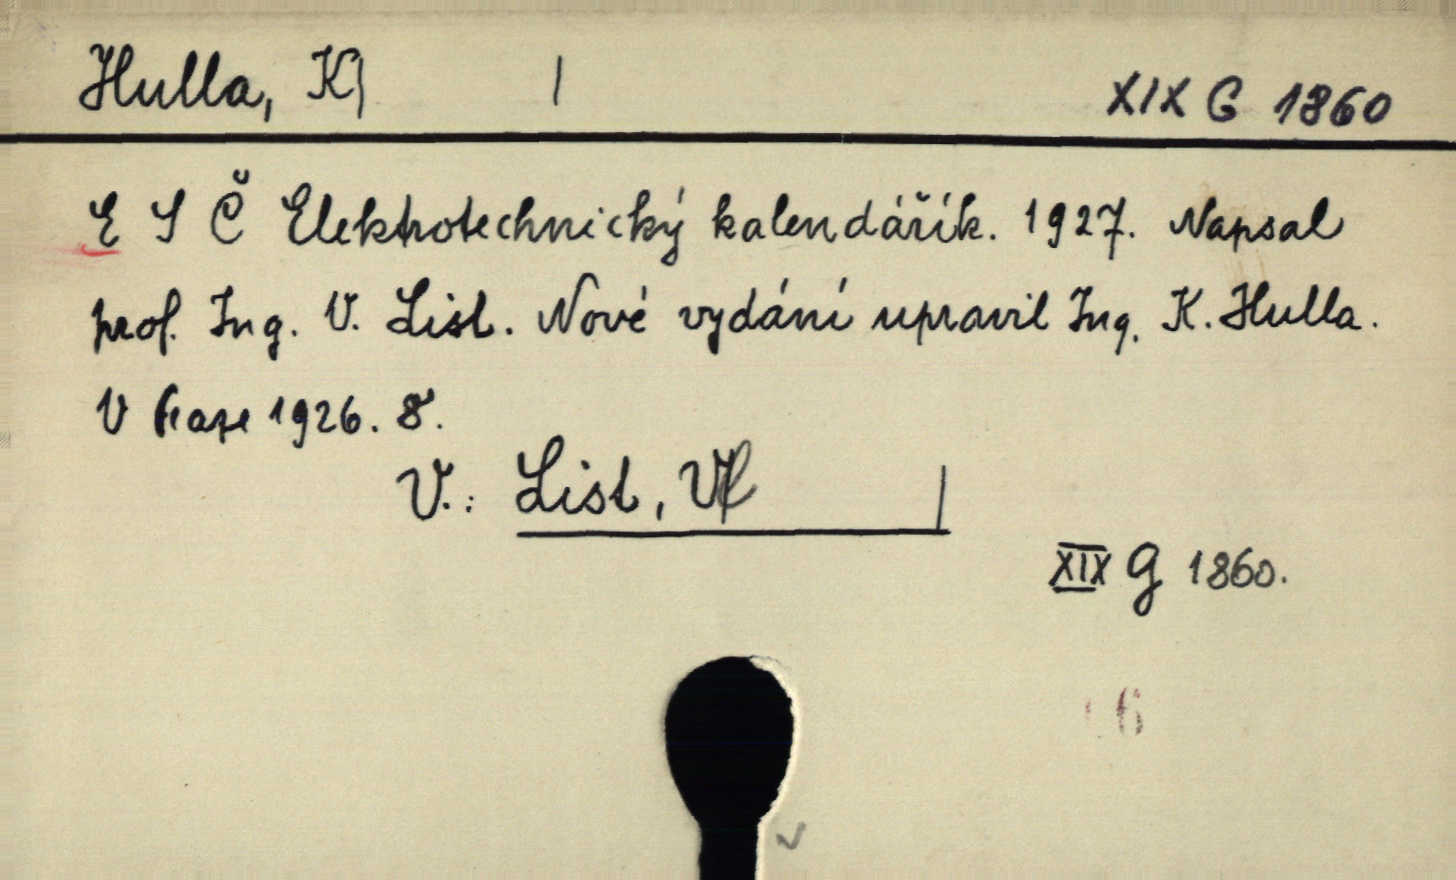 Hulla, K| | XIX G 1860
E S Č Elektrotechnický kalendářík. 1927. Napsal
prof. Ing. V. List. Nové vydání upravil Ing. K. Hulla.
V Praze 1926. 8°.
V.: List, Vl |
XIX G 1860.
6